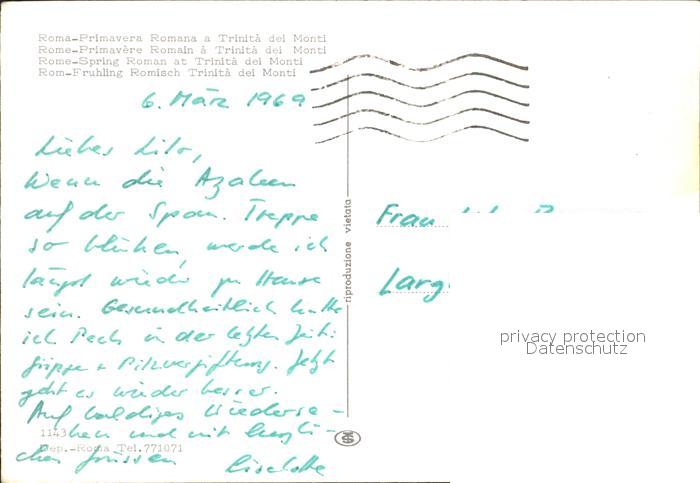 Roma-Primavera Romana a Trinità dei Monti
Rome-Primavère Romain à Trinità dei Monti
Rome-Spring Roman at Trinità dei Monti
Rom-Fruhling Romisch Trinità dei Monti
6. März 1969
Liebes Lilo,
Wenn die Azaleen
auf der Span. Treppe
so blühen, werde ich
längst wieder zu Hause
sein. Gesundheitlich hatte
ich Pech in der letzten Zeit:
Grippe + Pilzvergiftung. Jetzt
geht es wieder besser.
Auf baldiges Wiederse-
hen und mit herzli-
chen Grüssen Liselotte
1143
Dep.-Roma Tel.771071
riproduzione vietata
Frau
Larg
privacy protection
Datenschutz